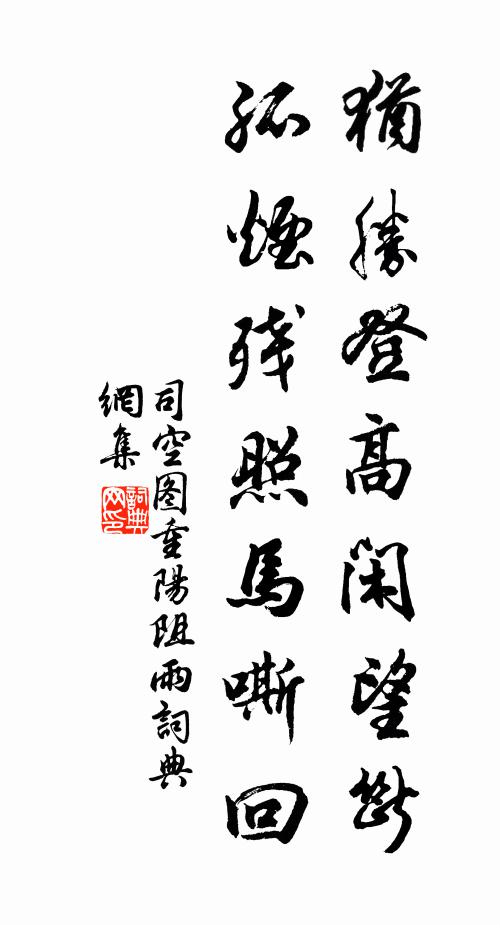 猶勝登高閑望斷
孤煙残照馬嘶回
司空图重陽阻雨詞典
網集
詞典
网印